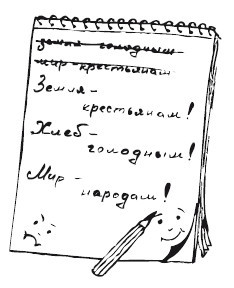 земля голодным
мир крестьянам
Земля -
крестьянам!
Хлеб -
голодным!
Мир -
народам!